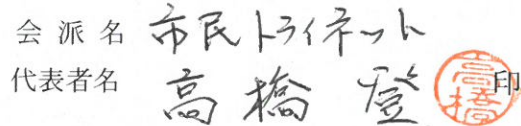 会派名 市民トライネット
代表者名 高橋 登 高橋 印